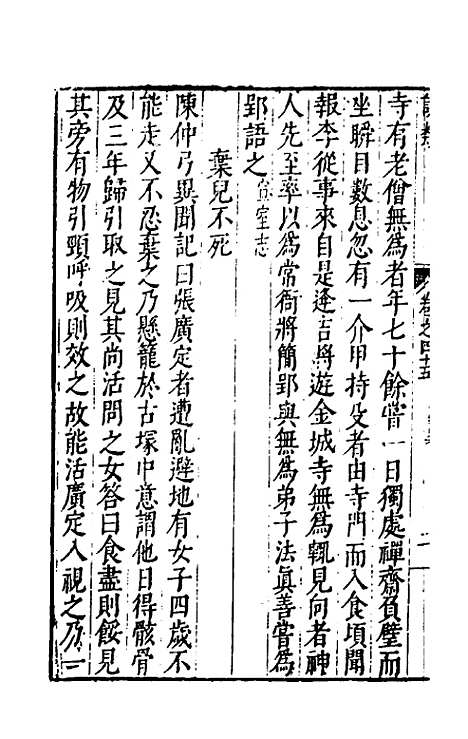 卷之四十五
寺有老僧無爲者年七十餘嘗一日獨處禪齋負壁而
坐瞬目數息忽有一介甲持殳者由寺門而入食頃聞
報李從事來自是逢吉將遊金城寺無爲輒見向者神
人先至率以爲常衙將簡郢與無爲弟子法真善嘗爲
郢語之宣室志
棄兒不死
陳仲弓異聞記曰張廣定者遭亂避地有女子四歲不
能走又不忍棄之乃懸籠於古塚中意謂他日得骸骨
及三年歸引取之見其尚活問之女答曰食盡則餒見
其旁有物引頸呼吸則效之故能活廣定入視之乃一